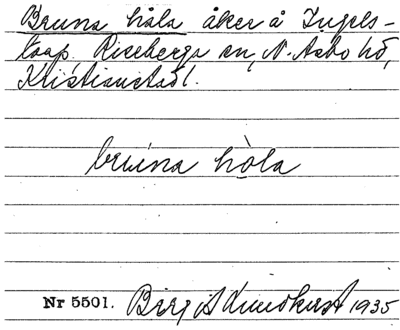 Bruna håla åker å Ingels-
torp Riseberga sn, N. Asbo hd,
Kristianstadl.
bruna hòla
Nr 5501. Birgit Lundkvist 1935